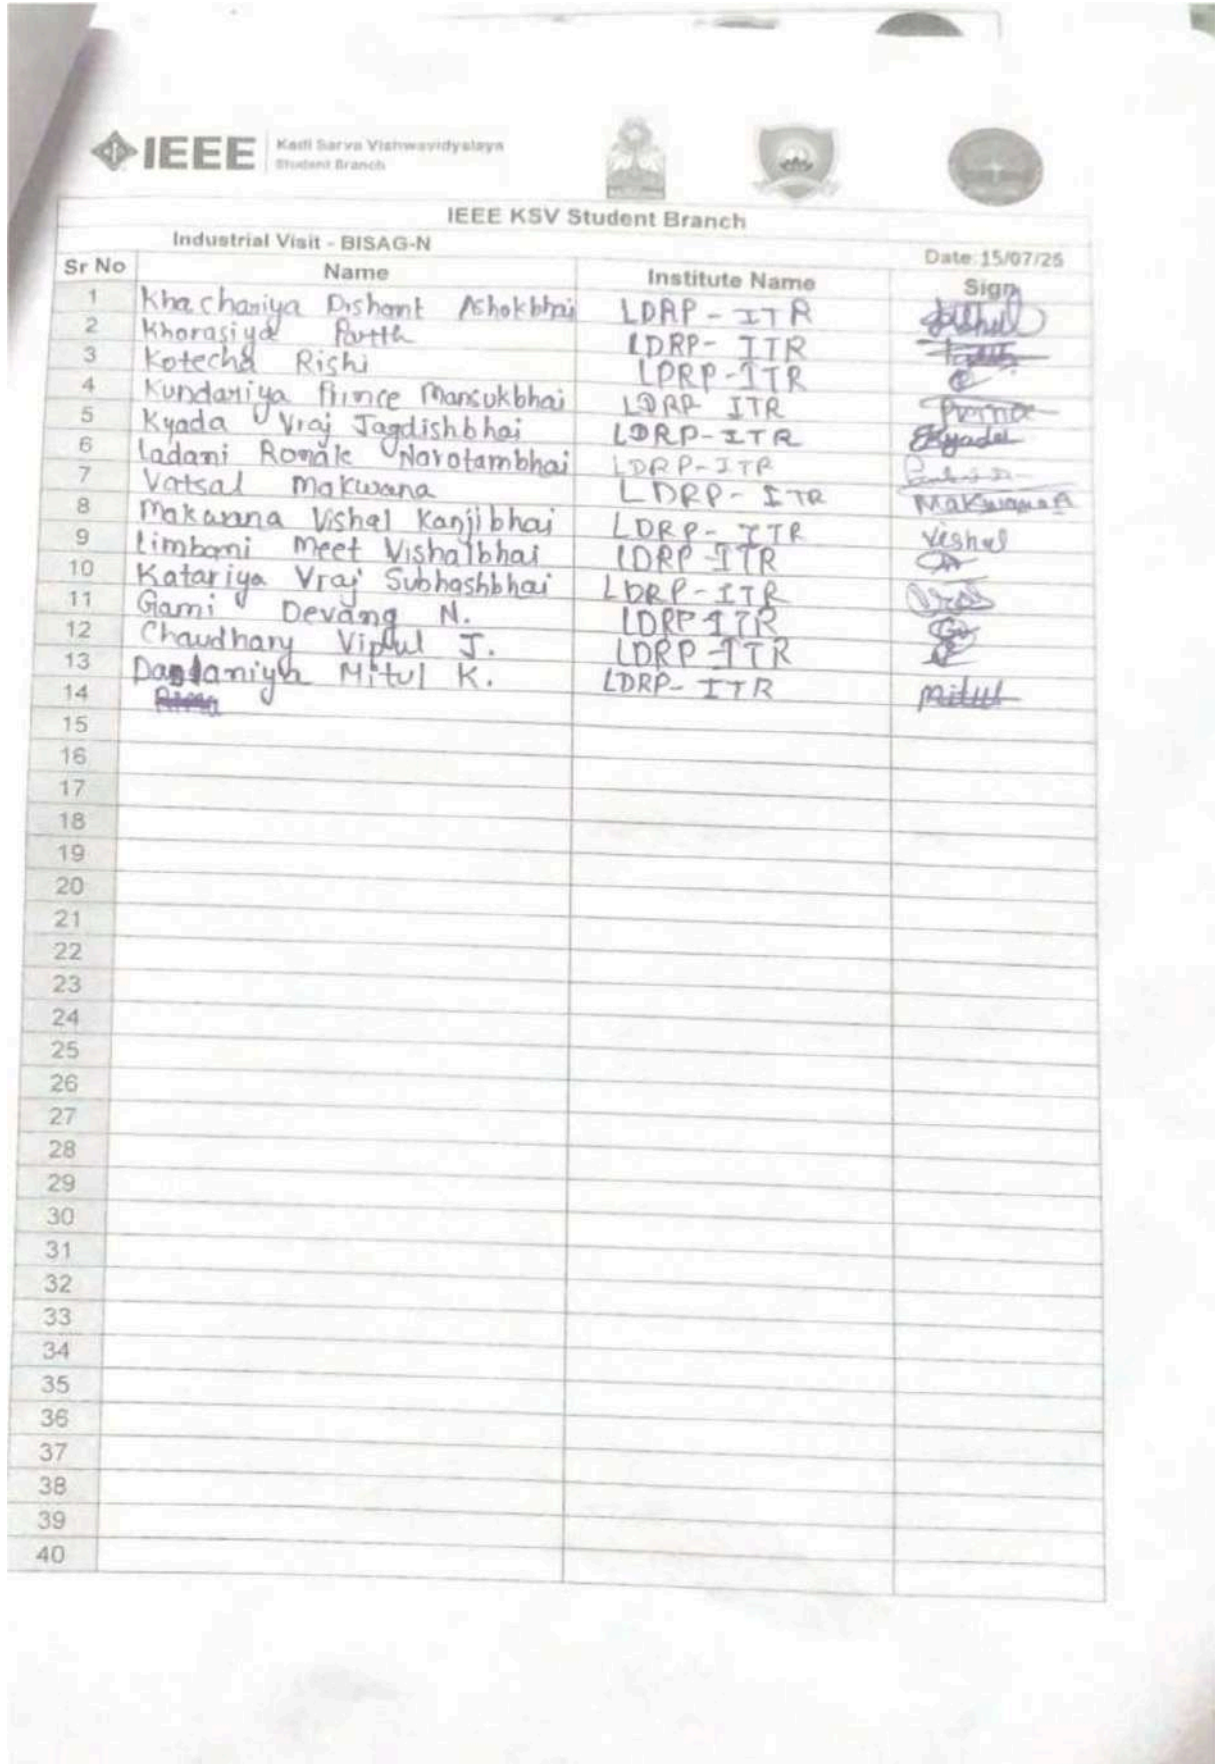 IEEE Kadi Sarva Vishwavidyalaya
Student Branch
IEEE KSV Student Branch
Industrial Visit - BISAG-N Date: 15/07/25
Sr No Name Institute Name Sign
1 Khachariya Dishant Ashokbhai LDRP - ITR
2 Khorasiya Parth LDRP- ITR
3 Kotecha Rishi LDRP-ITR
4 Kundariya Prince Mansukbhai LDRP ITR
5 Kyada Vraj Jagdishbhai LDRP-ITR Kyada
6 Ladani Ronak Narotambhai LDRP-ITR
7 Vatsal Makwana LDRP- ITR Makwana
8 Makwana Vishal Kanjibhai LDRP- ITR Vishal
9 Limbani Meet Vishalbhai LDRP-ITR
10 Katariya Vraj Subhashbhai LDRP-ITR
11 Gami Devang N. LDRP ITR
12 Chaudhary Vipul J. LDRP-ITR
13 Mitul K. LDRP- ITR mitul
14
15
16
17
18
19
20
21
22
23
24
25
26
27
28
29
30
31
32
33
34
35
36
37
38
39
40